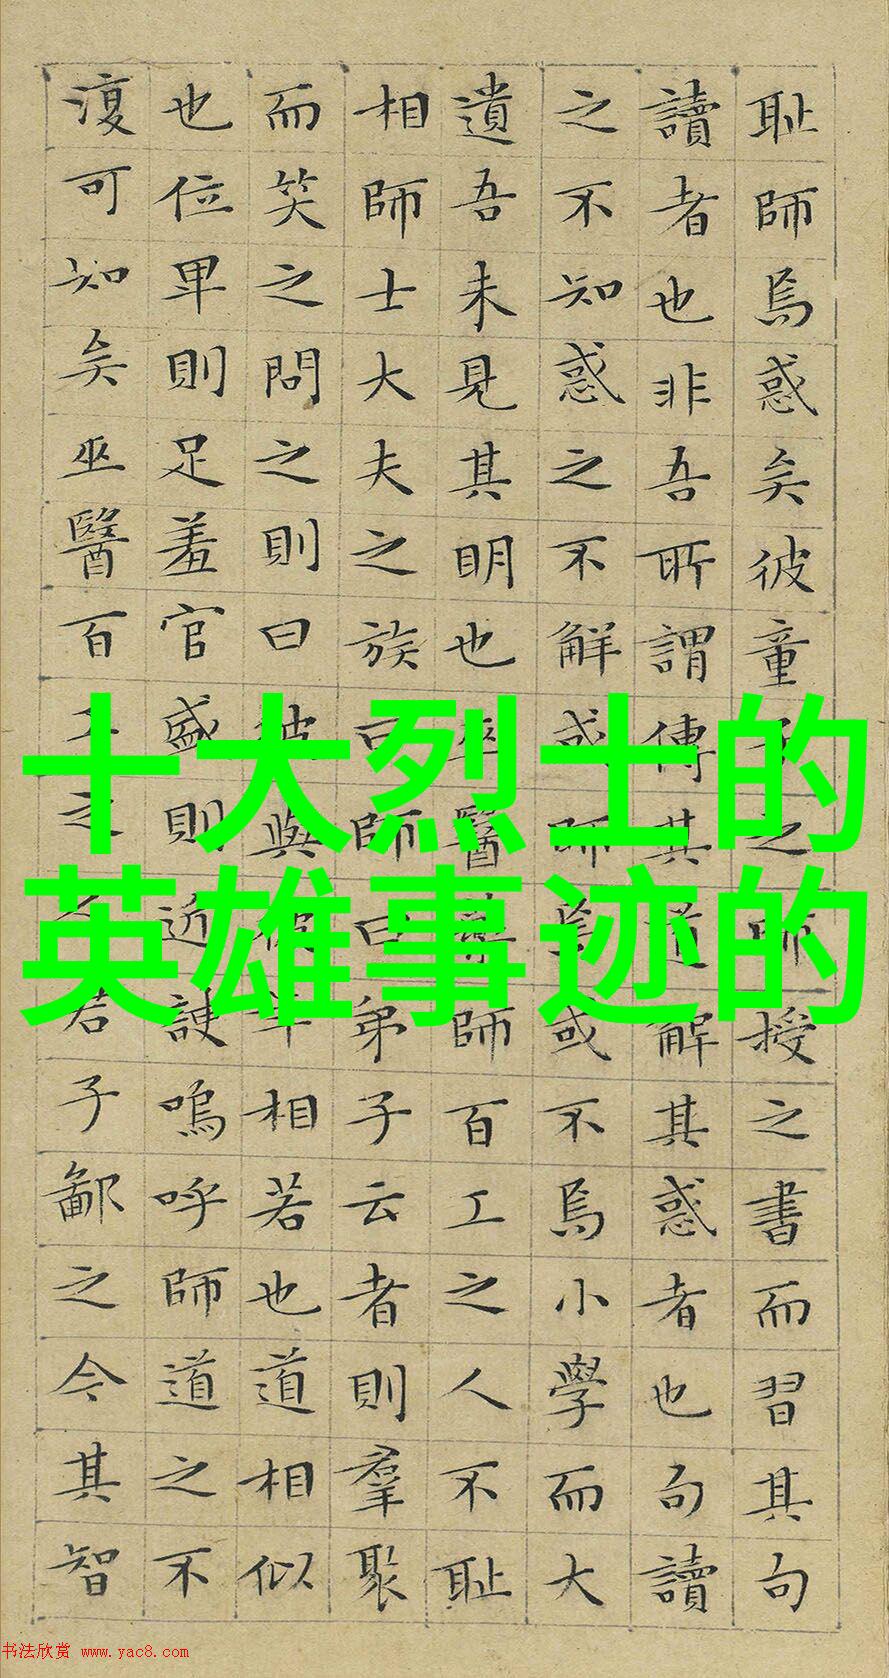 耻師焉惑矣彼童子之師授之書而習其句
讀者也非吾所謂傳其道解其惑者也句讀
之不知惑之不解或師焉或不焉小學而大
遺吾未見其明也巫醫樂師百工之人不耻
相師士大夫之族曰師曰弟子云者則羣聚
而笑之問之則曰彼與彼年相若也道相似
也位卑則足羞官盛則近諛嗚呼師道之不
復可知矣巫醫百工之人君子鄙之今其智
十大烈士的
英雄事迹的
书法欣赏 www.yac8.com